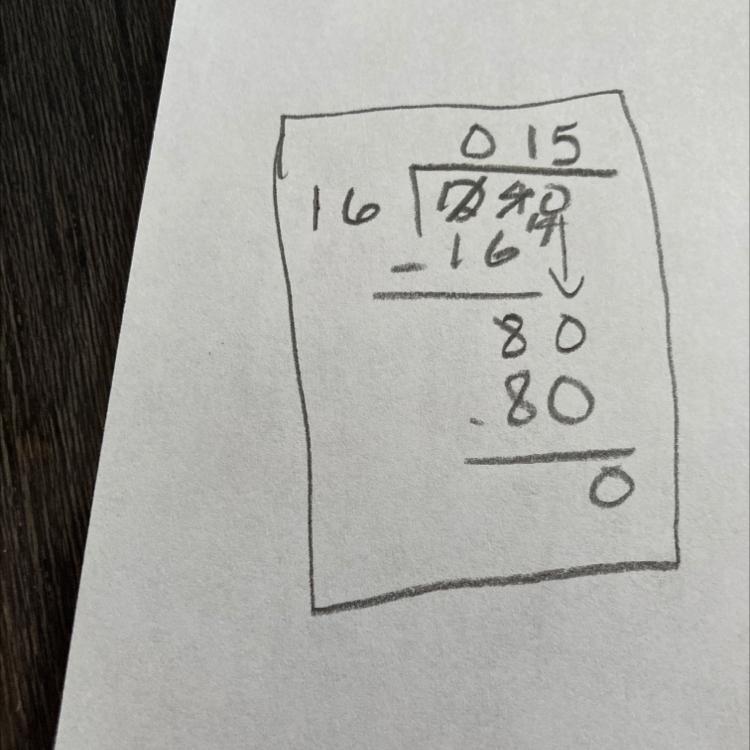 015
16 240
14
- 16
80
80
0